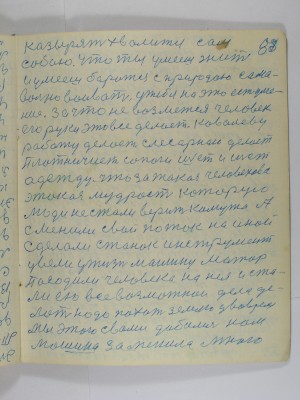 казырят хвалити сам
собою. что ты умееш жит
и умееш боротся с природою сама
волно воиват, у тебя на это есть уме
ния. За что не возмется человек
его руки это все делает. Ковалеву
работу делает слесарною делает
плотничает сопоги шует и шет
одежду. что за такая человекова
этокая мудраст которую
люди нестали верит кому та А
сменили свой поток на иной
сделали станок инструмент
увели у жизн машину Матор
посодили человека на нея и ста
ли ею все возможнои дела де
лат надо пахат землю двоврем
мы этого свами дабилис нам
машина за менила много